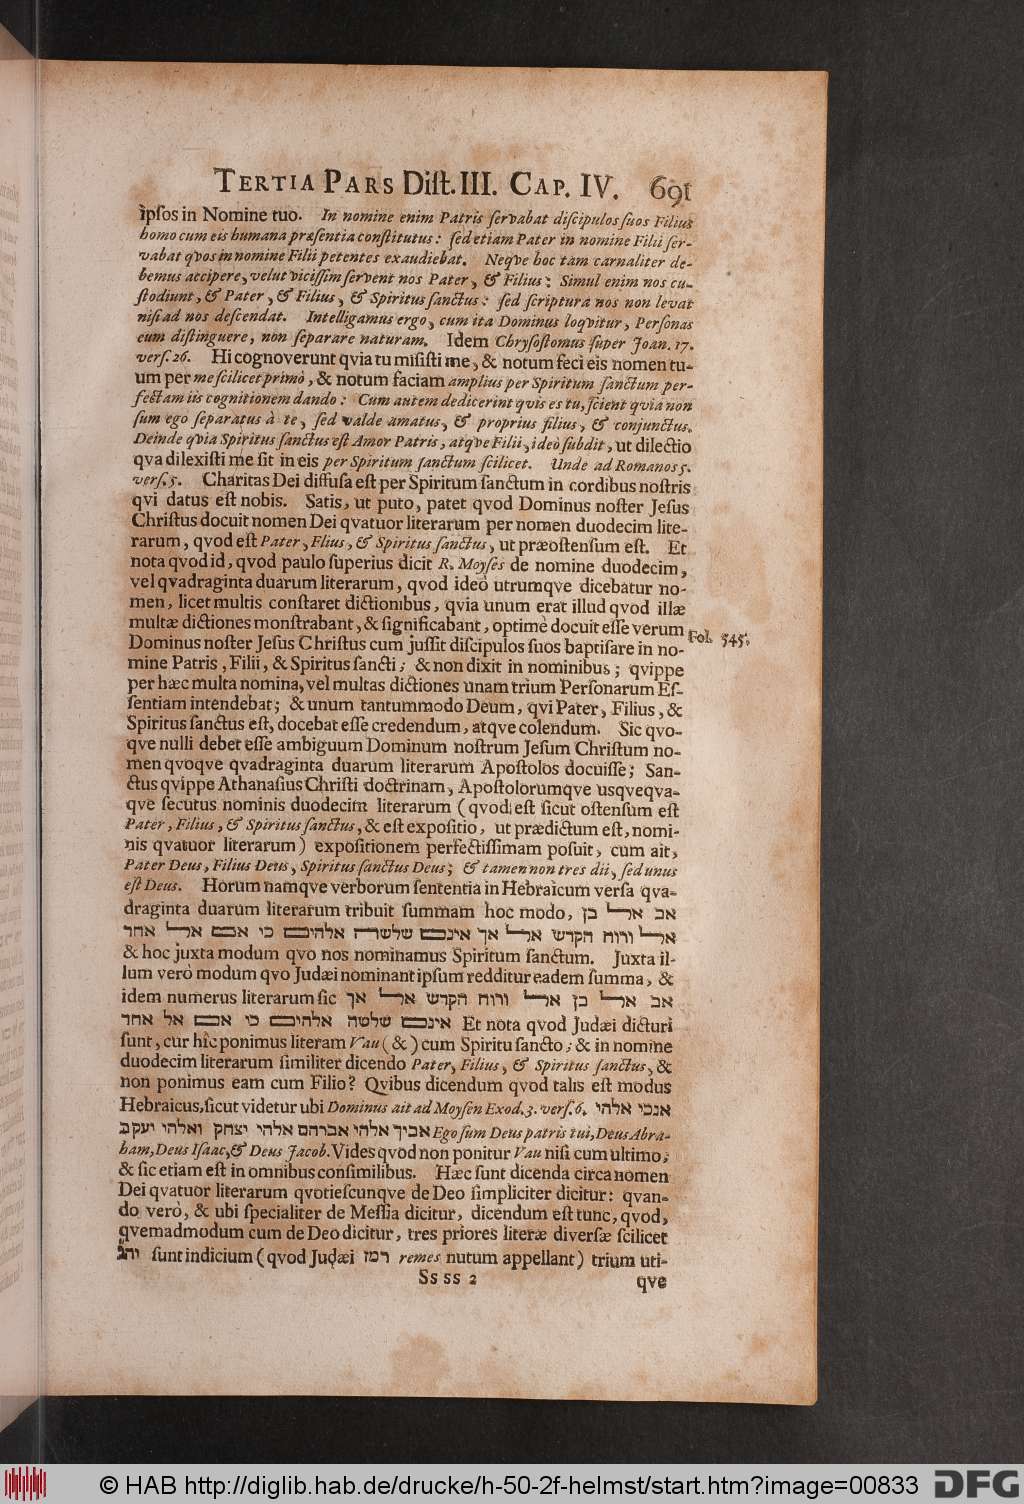 TERTIA PARS Diſt. III. CAP. IV. 691
ipſos in Nomine tuo. In nomine enim Patris ſervabat diſcipulos ſuos Filius
homo cum eis humana præſentia conſtitutus: ſed etiam Pater in nomine Filii ſer-
vabat qvos in nomine Filii petentes exaudiebat. Neqve hoc tam carnaliter de-
bemus accipere, velut viciſſim ſervent nos Pater, & Filius: Simul enim nos cu-
ſtodiunt, & Pater, & Filius, & Spiritus ſanctus: ſed ſcriptura nos non levat
niſi ad nos deſcendat. Intelligamus ergo, cum ita Dominus loqvitur, Perſonas
eum diſtinguere, non ſeparare naturam. Idem Chryſoſtomus ſuper Joan. 17.
verſ. 26. Hi cognoverunt qvia tu miſiſti me, & notum feci eis nomen tu-
um per me ſcilicet primò, & notum faciam amplius per Spiritum ſanctum per-
fectam iis cognitionem dando: Cum autem dedicerint qvis es tu, ſcient qvia non
ſum ego ſeparatus à te, ſed valde amatus, & proprius filius, & conjunctus.
Deinde qvia Spiritus ſanctus eſt Amor Patris, atqve Filii, ideò ſubdit, ut dilectio
qva dilexiſti me ſit in eis per Spiritum ſanctum ſcilicet. Unde ad Romanos 5.
verſ. 5. Charitas Dei diffuſa eſt per Spiritum ſanctum in cordibus noſtris
qvi datus eſt nobis. Satis, ut puto, patet qvod Dominus noſter Jeſus
Chriſtus docuit nomen Dei qvatuor literarum per nomen duodecim lite-
rarum, qvod eſt Pater, Flius, & Spiritus ſanctus, ut præoſtenſum eſt. Et
nota qvod id, qvod paulo ſuperius dicit R. Moyſes de nomine duodecim,
vel qvadraginta duarum literarum, qvod ideò utrumqve dicebatur no-
men, licet multis conſtaret dictionibus, qvia unum erat illud qvod illæ
multæ dictiones monſtrabant, & ſignificabant, optimè docuit eſſe verum
Fol. 545.
Dominus noſter Jeſus Chriſtus cum juſſit diſcipulos ſuos baptiſare in no-
mine Patris, Filii, & Spiritus ſancti; & non dixit in nominibus; qvippe
per hæc multa nomina, vel multas dictiones unam trium Perſonarum Eſ-
ſentiam intendebat; & unum tantummodo Deum, qvi Pater, Filius, &
Spiritus ſanctus eſt, docebat eſſe credendum, atqve colendum. Sic qvo-
qve nulli debet eſſe ambiguum Dominum noſtrum Jeſum Chriſtum no-
men qvoqve qvadraginta duarum literarum Apoſtolos docuiſſe; San-
ctus qvippe Athanaſius Chriſti doctrinam, Apoſtolorumqve usqveqva-
qve ſecutus nominis duodecim literarum (qvod eſt ſicut oſtenſum eſt
Pater, Filius, & Spiritus ſanctus, & eſt expoſitio, ut prædictum eſt, nomi-
nis qvatuor literarum) expoſitionem perfectiſſimam poſuit, cum ait,
Pater Deus, Filius Deus, Spiritus ſanctus Deus; & tamen non tres dii, ſed unus
eſt Deus. Horum namqve verborum ſententia in Hebraicum verſa qva-
draginta duarum literarum tribuit ſummam hoc modo, אב אל בן
אל ורוח הקדש אל אך אינם שלשה אלהים כי אם אל אחד
& hoc juxta modum qvo nos nominamus Spiritum ſanctum. Juxta il-
lum verò modum qvo Judæi nominant ipſum redditur eadem ſumma, &
idem numerus literarum ſic אב אל בן אל ורוח הקדש אל אך
אינם שלשה אלהים כי אם אל אחד Et nota qvod Judæi dicturi
ſunt, cur hîc ponimus literam Vau (&) cum Spiritu ſancto; & in nomine
duodecim literarum ſimiliter dicendo Pater, Filius, & Spiritus ſanctus, &
non ponimus eam cum Filio? Qvibus dicendum qvod talis eſt modus
Hebraicus, ſicut videtur ubi Dominus ait ad Moyſen Exod. 3. verſ. 6. אנכי אלהי
אביך אלהי אברהם אלהי יצחק ואלהי יעקב Ego ſum Deus patris tui, Deus Abra-
ham, Deus Iſaac, & Deus Jacob. Vides qvod non ponitur Vau niſi cum ultimo;
& ſic etiam eſt in omnibus conſimilibus. Hæc ſunt dicenda circa nomen
Dei qvatuor literarum qvotieſcunqve de Deo ſimpliciter dicitur: qvan-
do verò, & ubi ſpecialiter de Meſſia dicitur, dicendum eſt tunc, qvod,
qvemadmodum cum de Deo dicitur, tres priores literæ diverſæ ſcilicet
יהו ſunt indicium (qvod Judæi רמז remes nutum appellant) trium uti-
Ss ss 2 qve
© HAB http://diglib.hab.de/drucke/h-50-2f-helmst/start.htm?image=00833 DFG